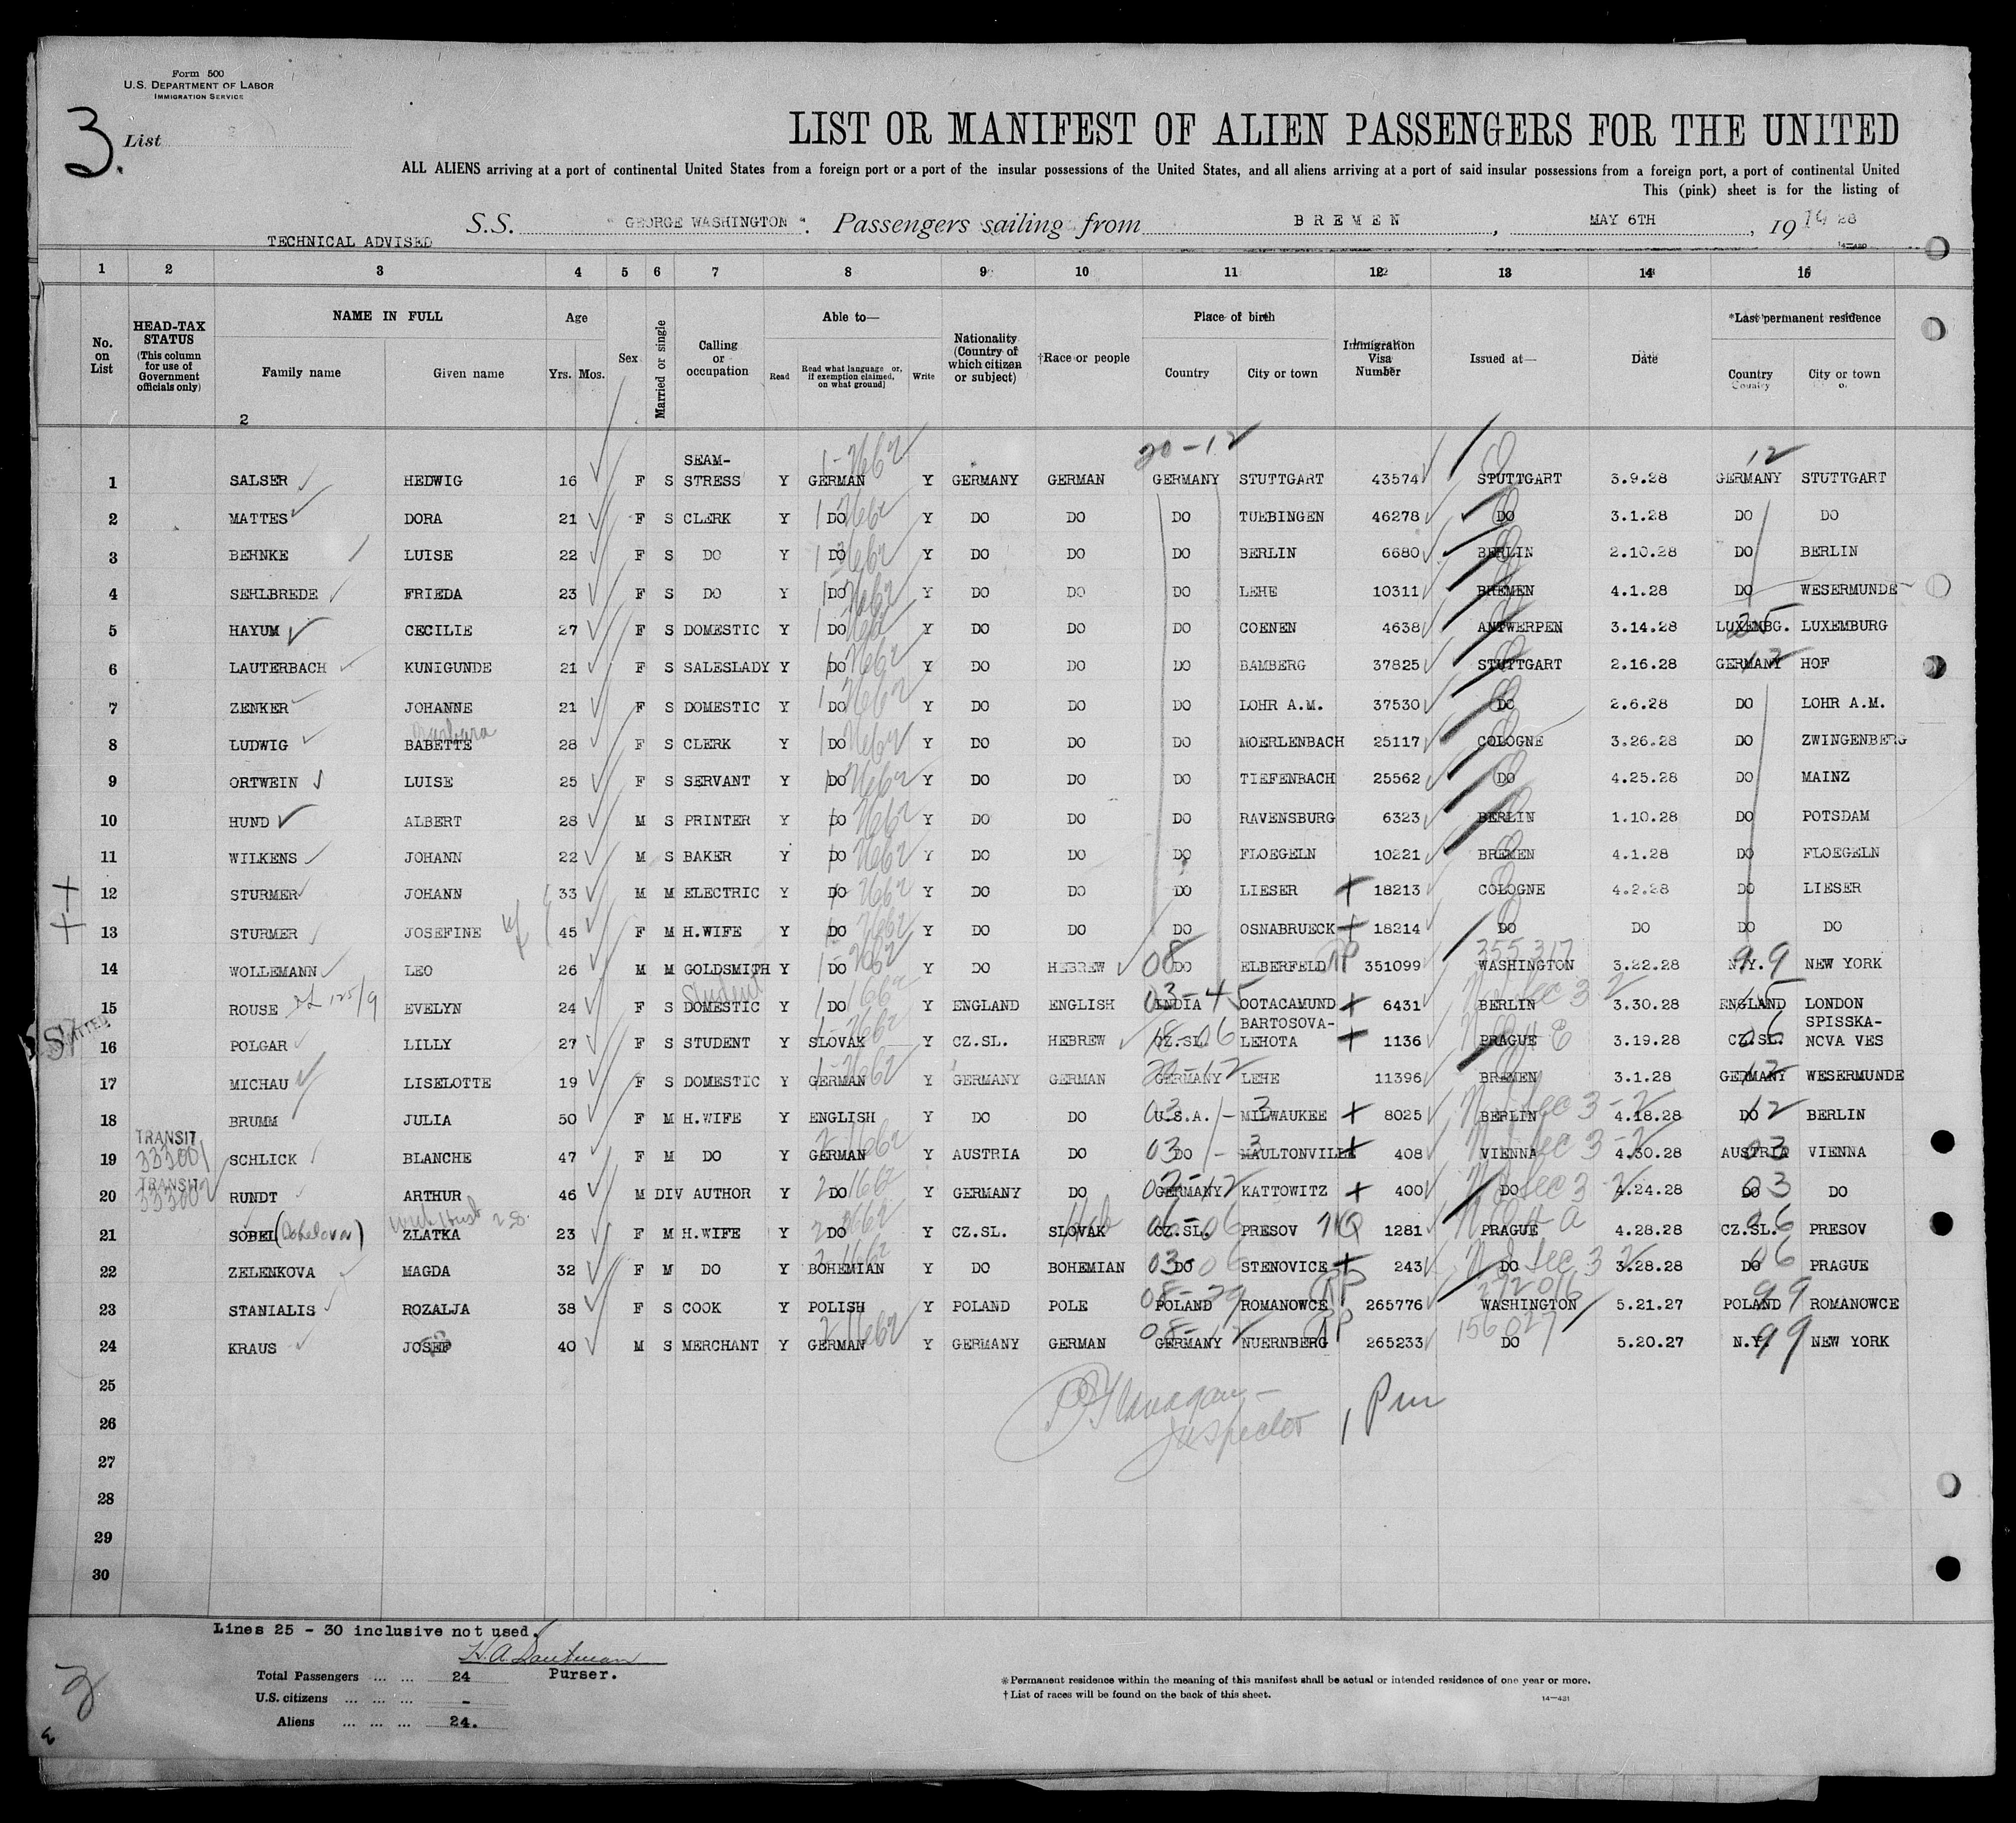 Form 500
U.S. DEPARTMENT OF LABOR
IMMIGRATION SERVICE
3.
List
LIST OR MANIFEST OF ALIEN PASSENGERS FOR THE UNITED
ALL ALIENS arriving at a port of continental United States from a foreign port or a port of the insular possessions of the United States, and all aliens arriving at a port of said insular possessions from a foreign port, a port of continental United
This (pink) sheet is for the listing of
S.S. " GEORGE WASHINGTON ". Passengers sailing from BREMEN, MAY 6TH, 19 28
TECHNICAL ADVISED
1 2 3 4 5 6 7 8 9 10 11 12 13 14 15
No. on List
HEAD-TAX STATUS (This column for use of Government officials only)
NAME IN FULL
Family name Given name
Age
Yrs. Mos.
Sex
Married or single
Calling or occupation
Able to—
Read Read what language or, if exemption claimed, on what ground] Write
Nationality (Country of which citizen or subject)
†Race or people
Place of birth
Country City or town
Immigration Visa Number
Issued at—
Date
*Last permanent residence
Country City or town
2
20-12 12
1 SALSER HEDWIG 16 F S SEAM-STRESS Y GERMAN Y GERMANY GERMAN GERMANY STUTTGART 43574 STUTTGART 3.9.28 GERMANY STUTTGART
2 MATTES DORA 21 F S CLERK Y DO Y DO DO DO TUEBINGEN 46278 DO 3.1.28 DO DO
3 BEHNKE LUISE 22 F S DO Y DO Y DO DO DO BERLIN 6680 BERLIN 2.10.28 DO BERLIN
4 SEHLBREDE FRIEDA 23 F S DO Y DO Y DO DO DO LEHE 10311 BREMEN 4.1.28 DO WESERMUNDE
5 HAYUM CECILIE 27 F S DOMESTIC Y DO Y DO DO DO COENEN 4638 ANTWERPEN 3.14.28 LUXEMBG. LUXEMBURG
6 LAUTERBACH KUNIGUNDE 21 F S SALESLADY Y DO Y DO DO DO BAMBERG 37825 STUTTGART 2.16.28 GERMANY HOF
7 ZENKER JOHANNE 21 F S DOMESTIC Y DO Y DO DO DO LOHR A.M. 37530 DO 2.6.28 DO LOHR A.M.
Barbara
8 LUDWIG BABETTE 28 F S CLERK Y DO Y DO DO DO MOERLENBACH 25117 COLOGNE 3.26.28 DO ZWINGENBERG
9 ORTWEIN LUISE 25 F S SERVANT Y DO Y DO DO DO TIEFENBACH 25562 DO 4.25.28 DO MAINZ
10 HUND ALBERT 28 M S PRINTER Y DO Y DO DO DO RAVENSBURG 6323 BERLIN 1.10.28 DO POTSDAM
11 WILKENS JOHANN 22 M S BAKER Y DO Y DO DO DO FLOEGELN 10221 BREMEN 4.1.28 DO FLOEGELN
12 STURMER JOHANN 33 M M ELECTRIC Y DO Y DO DO DO LIESER 18213 COLOGNE 4.2.28 DO LIESER
13 STURMER JOSEFINE 45 F M H.WIFE Y DO Y DO DO DO OSNABRUECK 18214 DO DO DO DO
355317
14 WOLLEMANN LEO 26 M M GOLDSMITH Y DO Y DO HEBREW 08 DO ELBERFELD RP 351099 WASHINGTON 3.22.28 N.Y. 99 NEW YORK
Student
15 ROUSE EVELYN 24 F S DOMESTIC Y DO Y ENGLAND ENGLISH 03-45 INDIA OOTACAMUND 6431 BERLIN 3.30.28 ENGLAND LONDON
16 POLGAR LILLY 27 F S STUDENT Y SLOVAK Y CZ.SL. HEBREW CZ.SL. BARTOSOVA-LEHOTA 1136 PRAGUE 3.19.28 CZ.SL. SPISSKA-NOVA VES
17 MICHAU LISELOTTE 19 F S DOMESTIC Y GERMAN Y GERMANY GERMAN GERMANY LEHE 11396 BREMEN 3.1.28 GERMANY WESERMUNDE
18 BRUMM JULIA 50 F M H.WIFE Y ENGLISH Y DO DO U.S.A. MILWAUKEE 8025 BERLIN 4.18.28 DO 12 BERLIN
TRANSIT
19 SCHLICK BLANCHE 47 F M DO Y GERMAN Y AUSTRIA DO DO MAULTONVILLE 408 VIENNA 4.30.28 AUSTRIA VIENNA
TRANSIT
20 RUNDT ARTHUR 46 M DIV AUTHOR Y DO Y GERMANY DO GERMANY KATTOWITZ 400 DO 4.24.28 DO DO
21 SOBEL ZLATKA 23 F M H.WIFE Y DO Y CZ.SL. SLOVAK CZ.SL. PRESOV NQ 1281 PRAGUE 4.28.28 CZ.SL. PRESOV
22 ZELENKOVA MAGDA 32 F M DO Y BOHEMIAN Y DO BOHEMIAN DO STENOVICE 243 DO 3.28.28 DO PRAGUE
23 STANIALIS ROZALJA 38 F S COOK Y POLISH Y POLAND POLE POLAND ROMANOWCE RP 265776 WASHINGTON 5.21.27 POLAND ROMANOWCE
156027
24 KRAUS JOSEF 40 M S MERCHANT Y GERMAN Y GERMANY GERMAN GERMANY NUERNBERG RP 265233 DO 5.20.27 N.Y. 99 NEW YORK
25
26
Inspector
27
28
29
30
Lines 25 - 30 inclusive not used.
Purser.
Total Passengers ... ... 24
U.S. citizens ... ... ... -
Aliens ... ... ... 24.
*Permanent residence within the meaning of this manifest shall be actual or intended residence of one year or more.
†List of races will be found on the back of this sheet.
14—431